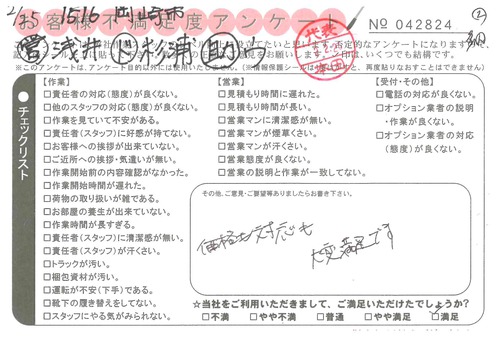 2/5 1516 岡崎市
お客様不満足度アンケート
代表
No 042824
②
営 浅井 ト 松浦
※このアンケートは、アンケート目的以外には使用いたしません。(※情報保護シールは1度はがすと、再度貼りなおすことはできません)
チェックリスト
【作業】
□責任者の対応(態度)が良くない。
□他のスタッフの対応(態度)が良くない。
□作業を見ていて不安がある。
□責任者(スタッフ)に好感が持てない。
□お客様への挨拶が出来ていない。
□ご近所への挨拶・気遣いが無い。
□作業開始前の内容確認がなかった。
□作業開始時間が遅れた。
□荷物の取り扱いが雑である。
□お部屋の養生が出来ていない。
□作業時間が長すぎる。
□責任者(スタッフ)に清潔感が無い。
□責任者(スタッフ)が汗くさい。
□トラックが汚い。
□梱包資材が汚い。
□運転が不安(下手)である。
□靴下の履き替えをしてない。
□スタッフにやる気がみられない。
【営業】
□見積もり時間に遅れた。
□見積もり時間が長い。
□営業マンに清潔感が無い。
□営業マンが煙草くさい。
□営業マンが汗くさい。
□営業態度が良くない。
□営業の説明と作業が一致してない。
【受付・その他】
□電話の対応が良くない。
□オプション業者の説明
・作業が良くない。
□オプション業者の対応
(態度)が良くない。
その他、ご意見・ご要望等ありましたらお書き下さい。
価格も対応も
大変満足です
☆当社をご利用いただきまして、ご満足いただけたでしょうか?
□不満 □やや不満 □普通 □やや満足 □満足